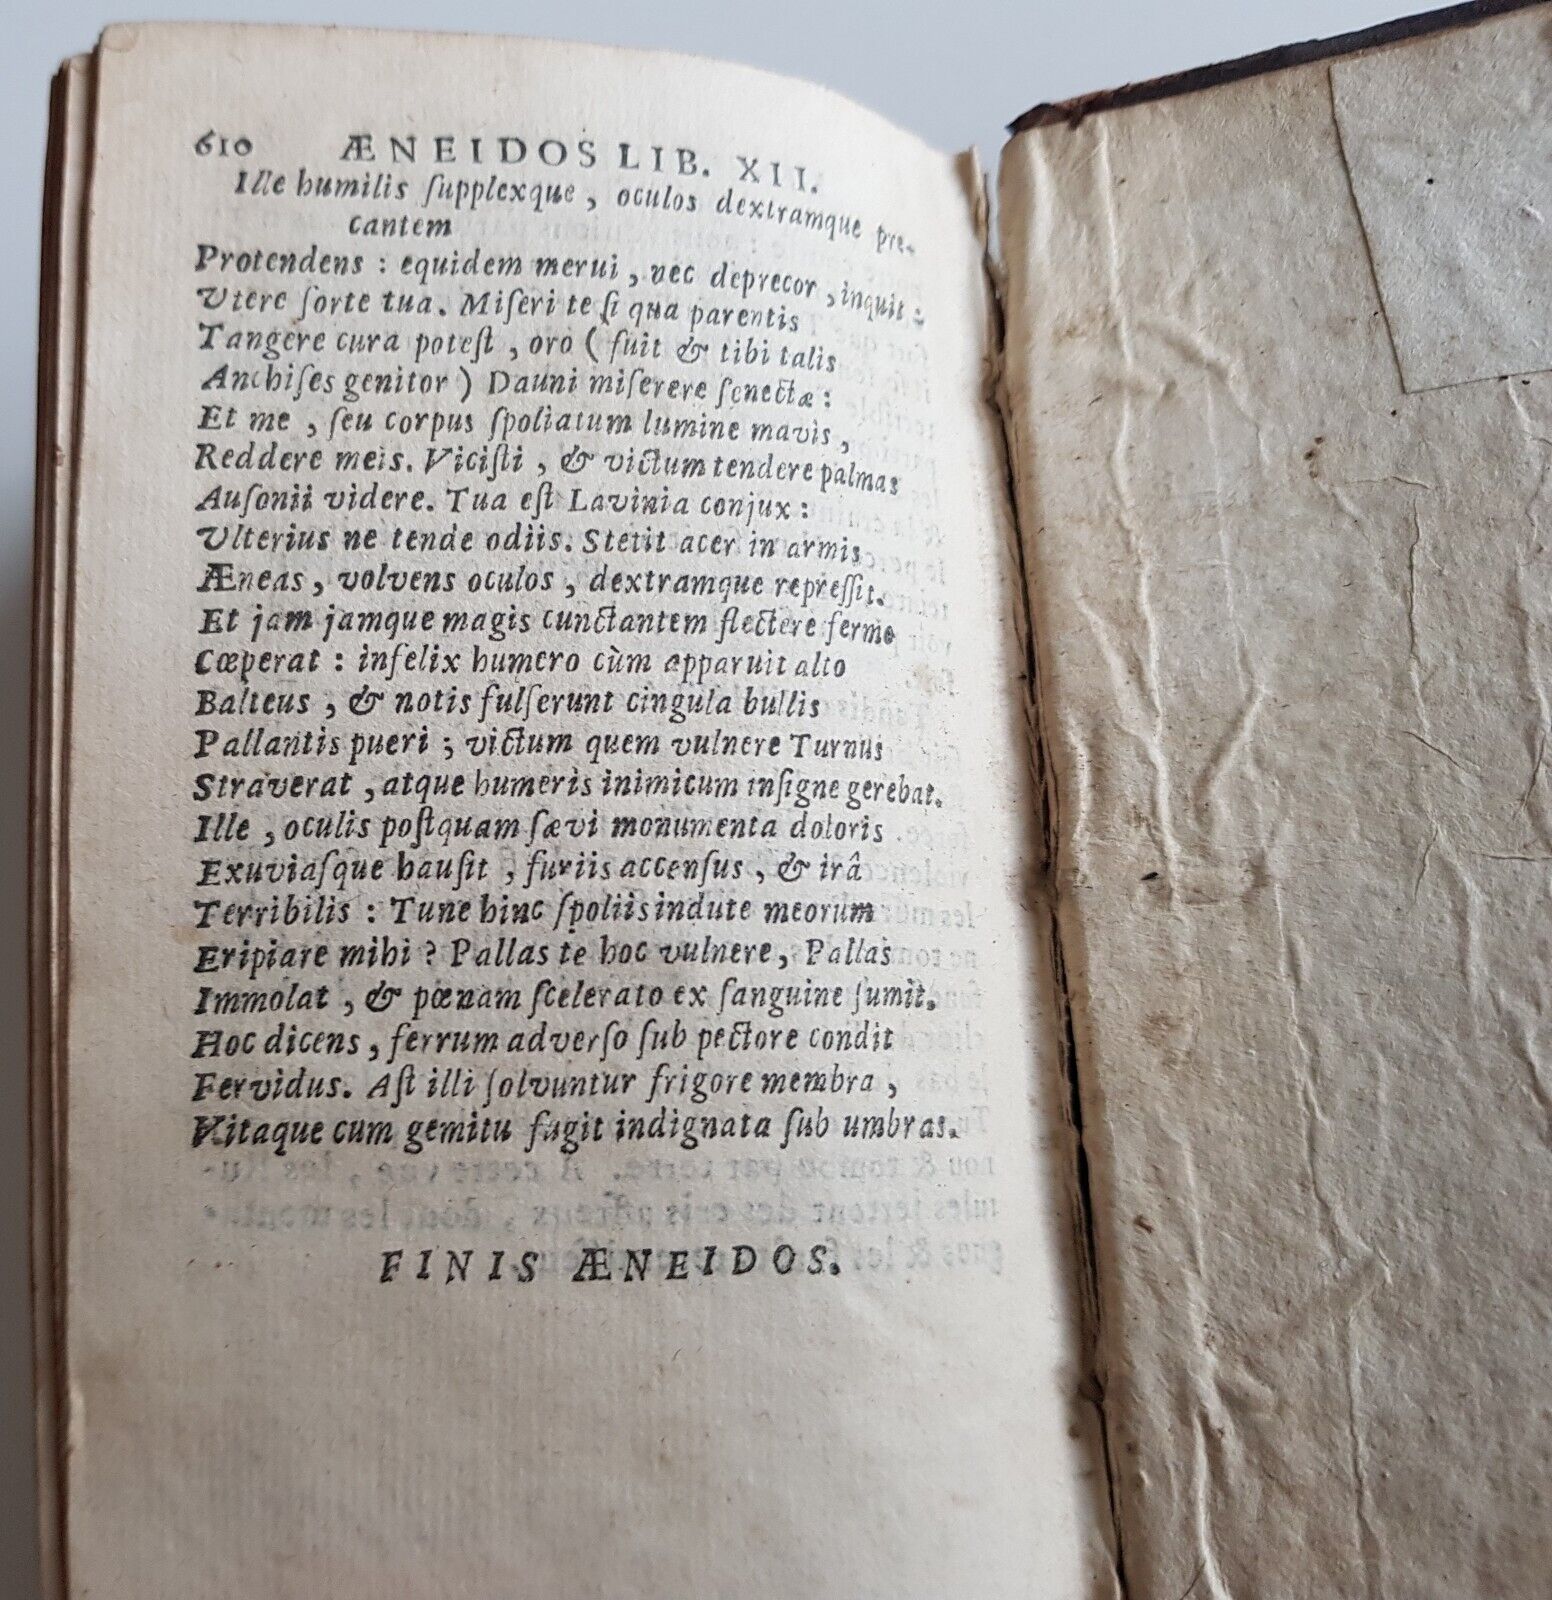 610 ÆNEIDOS LIB. XII.
Ille humilis ſupplexque, oculos dextramque pre-
cantem
Protendens : equidem merui, nec deprecor, inquit :
Utere ſorte tua. Miſeri te ſi qua parentis
Tangere cura poteſt, oro ( fuit & tibi talis
Anchiſes genitor ) Dauni miſerere ſenectæ :
Et me, ſeu corpus ſpoliatum lumine mavis,
Reddere meis. Viciſti, & victum tendere palmas
Auſonii videre. Tua eſt Lavinia conjux :
Ulterius ne tende odiis. Stetit acer in armis
Æneas, volvens oculos, dextramque repreſſit.
Et jam jamque magis cunctantem flectere ſermo
Cœperat : infelix humero cùm apparuit alto
Balteus, & notis fulſerunt cingula bullis
Pallantis pueri ; victum quem vulnere Turnus
Straverat, atque humeris inimicum inſigne gerebat.
Ille, oculis poſtquam ſævi monumenta doloris
Exuviaſque hauſit, furiis accenſus, & irâ
Terribilis : Tune hinc ſpoliis indute meorum
Eripiare mihi ? Pallas te hoc vulnere, Pallas
Immolat, & pœnam ſcelerato ex ſanguine ſumit.
Hoc dicens, ferrum adverſo ſub pectore condit
Fervidus. Aſt illi ſolvuntur frigore membra,
Vitaque cum gemitu fugit indignata ſub umbras.
FINIS ÆNEIDOS.